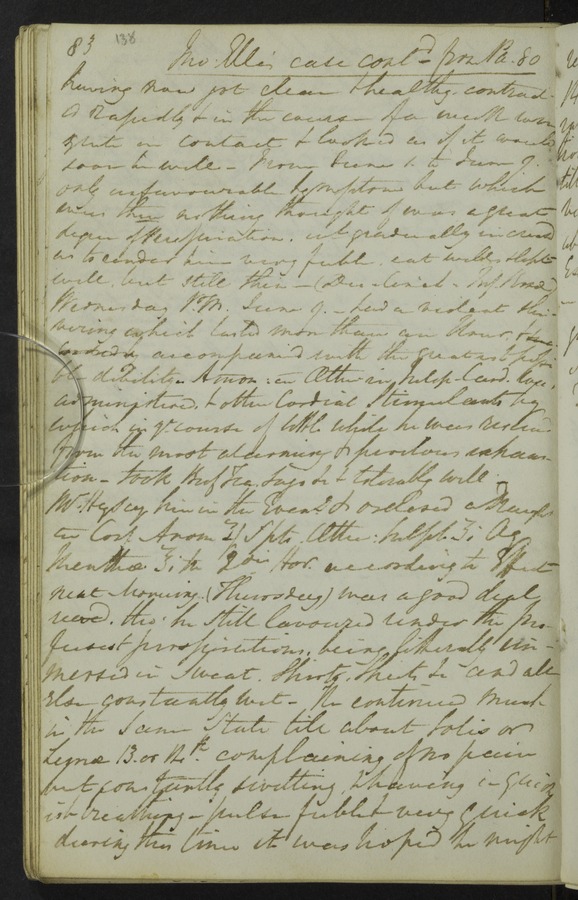 83 138
Jno. Ellis case cont.d from Pa. 80
having now got clean & healthy contract-
ed rapidly & in the course of a week were
quite in contact & looked as if it would
soon be well - From June to June 9.
only unfavourable symptom but which
was then nothing thought of was a great
degree of Perspiration. wt gradually increased
as to render him very feeble. eat well & slept
well but still thin - (Dec. Cinch. Inf.
Wednesday P.M. June 9. - had a violent shi-
vering which lasted more than an Hour, &
accompanied with the greatest possi-
ble debility. Ammon: Æther in Julep. Card.
administered, & other Cordial Stimulants by
which in ye course of little while he was reviv'd
from the most alarming & perilous exhaus-
tion - took Beef Tea, Sago &c & tolerably well.
Mr. H saw him in the Eveng. & ordered a Draught
Cort. Arom Spts. Æther: Aq
Menthæ Hor. according to Effect
next Morning (Thursday) was a good deal
reced. tho' he still laboured under the pro-
fusest perspirations, being litherally im-
mersed in Sweat. Shirts, Sheets &c and all
else constantly wet - He continued much
in the same State till about Solis or
Lunæ 13. or 14th. complaining of no pain
but constantly swetting, & having a quick
ish breathing - pulse feeble & very quick
during this time it was hoped he might